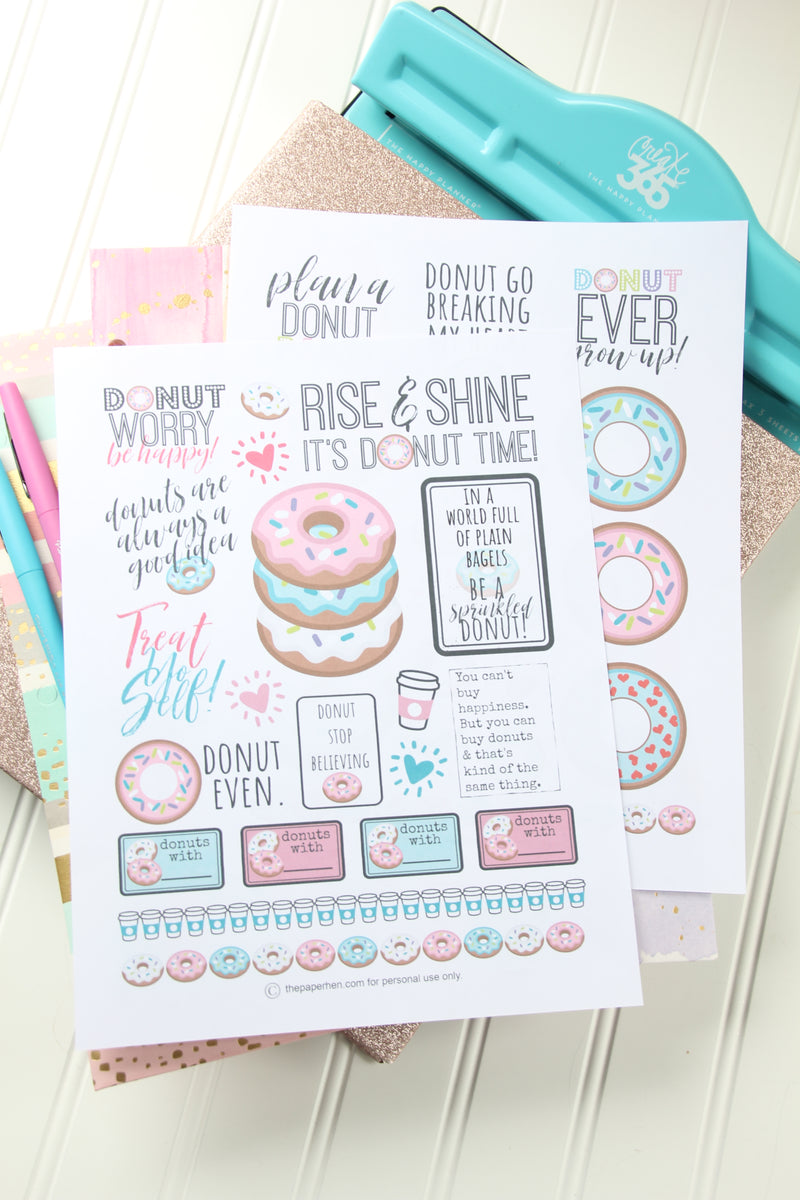 create
365
THE HAPPY PLANNER
THE HAPPY PLANNER®
plan a
DONUT
DONUT GO
BREAKING
MY HEART
DONUT
EVER
grow up!
DONUT
WORRY
be happy!
RISE & SHINE
IT'S DONUT TIME!
donuts are
always a
good idea
IN A
WORLD FULL
OF PLAIN
BAGELS
BE A
sprinkled
DONUT!
Treat
Yo
Self!
DONUT
STOP
BELIEVING
You can't
buy
happiness.
But you can
buy donuts
& that's
kind of the
same thing.
DONUT
EVEN.
donuts
with
donuts
with
donuts
with
donuts
with
© thepaperhen.com for personal use only.